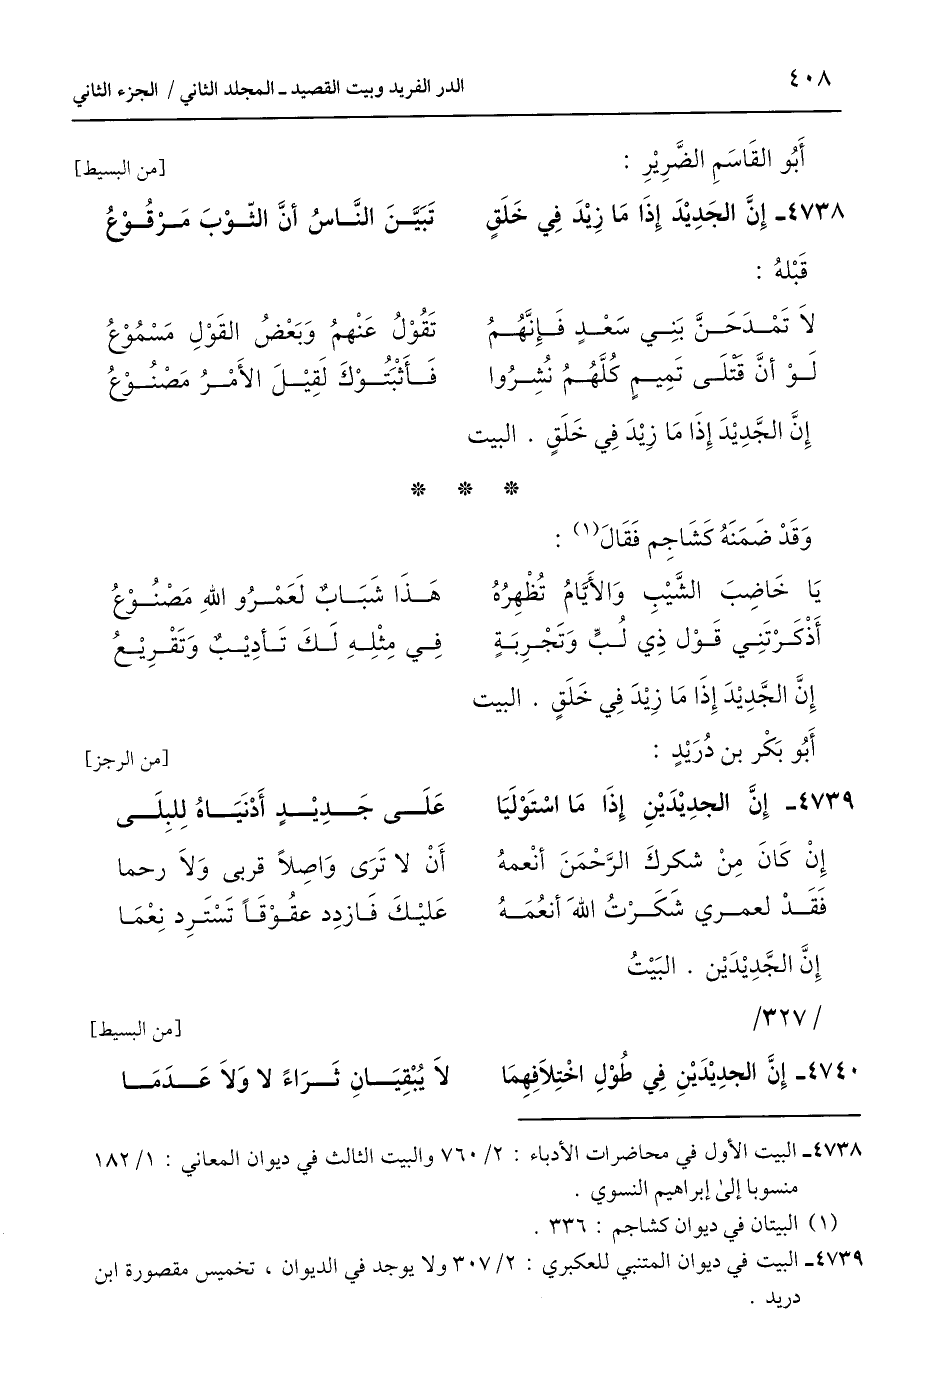 ٤٠٨ الدر الفريد وبيت القصيد ـ المجلد الثاني / الجزء الثاني
أَبُو القَاسَمِ الضَّرِيْرِ : [من البسيط]
٤٧٣٨ـ إِنَّ الجَدِيْدَ إِذَا مَا زِيْدَ فِي خَلَقٍ تَبَيَّنَ النَّاسُ أنَّ الثّوْبَ مَرْقُوْعُ
قَبْلهُ :
لاَ تَمْدَحَنَّ بَنِي سَعْدٍ فَإِنَّهُمُ تَقُوْلُ عَنْهمُ وَبَعْضُ القَوْلِ مَسْمُوْعُ
لَوْ أنَّ قَتْلَى تَمِيمٍ كُلَّهُمُ نُشِرُوا فَأَثْبَتُوْكَ لَقِيْلَ الأَمْرُ مَصْنُوْعُ
إِنَّ الجَّدِيْدَ إِذَا مَا زِيْدَ فِي خَلَقٍ . البيت
* * *
وَقَدْ ضَمَنَهُ كَشَاجِم فَقَالَ(١) :
يَا خَاضِبَ الشَّيْبِ وَالأَيَّامُ تُظْهِرُهُ هَذَا شَبَابٌ لَعَمْرُو اللهِ مَصْنُوْعُ
أَذْكَرْتَنِي قَوْل ذِي لُبٍّ وَتَجْرِبَةٍ فِي مِثْلِهِ لَكَ تَأدِيْبٌ وَتَقْرِيْعُ
إِنَّ الجَّدِيْدَ إِذَا مَا زِيْدَ فِي خَلَقٍ . البيت
أَبُو بَكْر بن دُرَيْدٍ : [من الرجز]
٤٧٣٩ـ إِنَّ الجديْدَيْنِ إِذَا مَا اسْتَوْلَيَا عَلَى جَدِيْدٍ أَدْنَيَاهُ لِلبِلَى
إِنْ كَانَ مِنْ شكركَ الرَّحْمَنَ أنْعمهُ أَنْ لا تَرَى وَاصِلاً قربى وَلاَ رحما
فَقَدْ لعمري شَكَرْتُ اللهَ أنعُمَهُ عَليْكَ فَازدِد عقُوْقَاً تَسْتَرِد نِعْمَا
إِنَّ الجَّدِيْدَيْن . البَيْتُ
/٣٢٧/ [من البسيط]
٤٧٤٠ـ إِنَّ الجدِيْدَيْنِ فِي طُوْلِ اخْتِلاَفِهِمَا لاَ يُبْقِيَانِ ثَرَاءً لا وَلاَ عَدَمَا
٤٧٣٨ـ البيت الأول في محاضرات الأدباء : ٢/ ٧٦٠ والبيت الثالث في ديوان المعاني : ١/ ١٨٢
منسوبا إلى إبراهيم النسوي .
(١) البيتان في ديوان كشاجم : ٣٣٦ .
٤٧٣٩ـ البيت في ديوان المتنبي للعكبري : ٢/ ٣٠٧ ولا يوجد في الديوان ، تخميس مقصورة ابن
دريد .